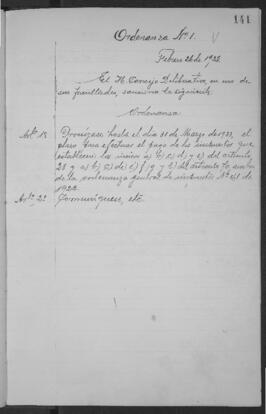 141
Ordenanza Nº 1.
Febrero 26 de 1932.
El H. Consejo Deliberativo, en uso de
sus facultades, sanciona la siguiente
Ordenanza
Art. 1º. Prorrógase hasta el día 31 de Marzo de 1932, el
plazo para efectuar el pago de los impuestos que
establecen los incisos a) b) c) d) y e) del artículo
28 y a) b) c) d) e) f) g) y
de la ordenanza general de impuestos Nº
Art. 2º. Comuníquese, etc.